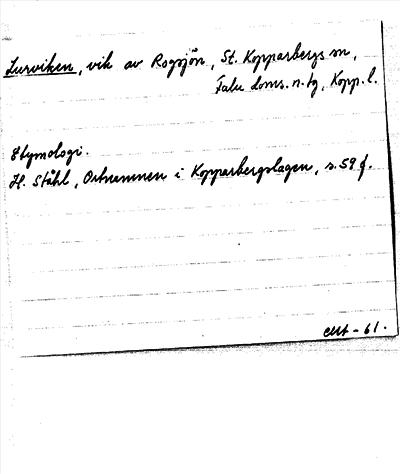 Lurviken, vik av Rogsjön, St. Kopparbergs sn,
Falu doms. n. tg, Kopp. l.
Etymologi.
H. Ståhl, Ortnamnen i Kopparbergslagen, s. 59 f.
-61.